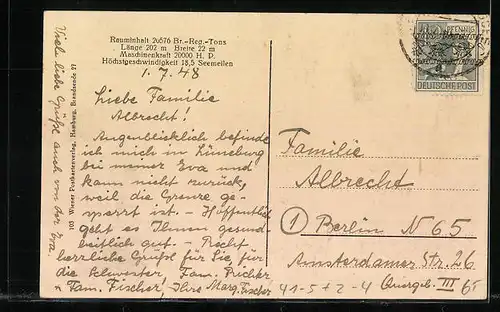 Raumинhalt 20576 Br.-Reg.-Tons
Länge 202 m Breite 22 m
Maschinenkraft 20000 H. P.
Höchstgeschwindigkeit 18,5 Seemeilen
1.7.48
Liebe Familie
Albrecht!
Augenblicklich befinde
ich mich in Lüneburg
bei meiner Eva und
kann nicht zurück,
weil die Grenze ge-
sperrt ist. - Hoffentlich
geht es Ihnen gesund-
heitlich gut. - Recht
herzliche Grüße für Sie, für
die Schwester, Fam. Richter
Fam. Fischer! Ihre Marg. Fischer
Viele liebe Grüße auch von der Eva
103 Wiener Postkartenverlag, Hamburg,
PFENNIG
DEUTSCHE POST
Familie
Albrecht
1 Berlin N 65
Amsterdamer Str. 26
Quergeb. III
41-5+2-4
65